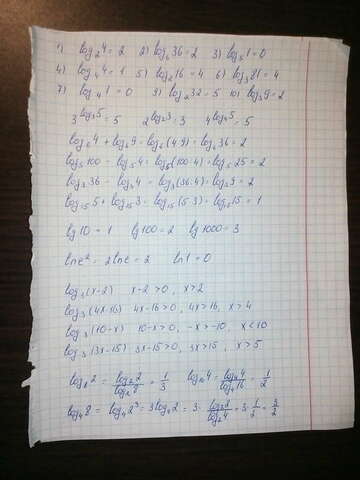 1) log₂4 = 2 2) log₆36 = 2 3) log₅1 = 0
4) log₄4 = 1 5) log₂16 = 4 6) log₃81 = 4
7) log₄1 = 0 9) log₂32 = 5 10) log₃9 = 2
3^log₃5 = 5 2^log₂3 = 3 4^log₄5 = 5
log₆4 + log₆9 = log₆(4·9) = log₆36 = 2
log₅100 - log₅4 = log₅(100:4) = log₅25 = 2
log₃36 - log₃4 = log₃(36:4) = log₃9 = 2
log₁₅5 + log₁₅3 = log₁₅(5·3) = log₁₅15 = 1
lg10 = 1 lg100 = 2 lg1000 = 3
lne² = 2lne = 2 ln1 = 0
log₃(x-2) x-2>0, x>2
log₃(4x-16) 4x-16>0, 4x>16, x>4
log₃(10-x) 10-x>0, -x>-10, x<10
log₃(3x-15) 3x-15>0, 3x>15, x>5
log₈2 = log₂2/log₂8 = 1/3 log₁₆4 = log₄4/log₄16 = 1/2
log₄8 = log₄2³ = 3log₄2 = 3·log₂2/log₂4 = 3·1/2 = 3/2